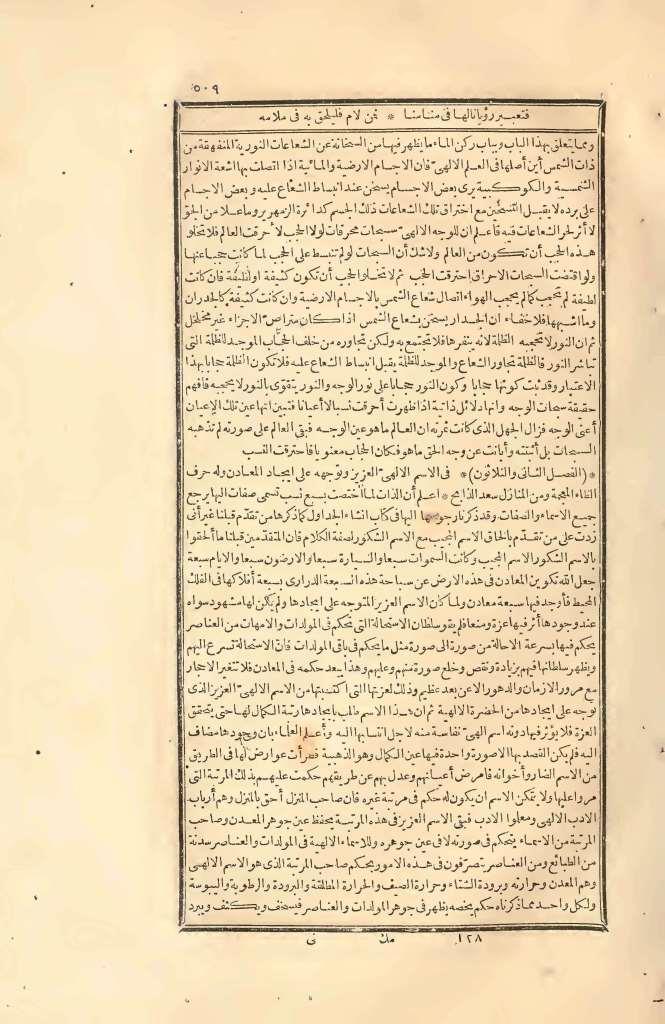 ٥٠٩
فتعبير رؤيانا لها فى منامنا * فمن لام فليلحق به فى ملامه
ومما يتعلق بهذا الباب وبباب ركن الماء ما يظهر فيها من السخانة عن الشعاعات النورية المنفهقة من
ذات الشمس أين أصلها فى العلم الالهىّ فان الاجسام الارضية والمائية اذا اتصلت بها أشعة الانوار
الشمسية والكوكبية يرى بعض الاجسام يسخن عند انبساط الشعاع عليه وبعض الاجسام
على برده لا يقبل التسخين مع اختراق تلك الشعاعات ذلك الجسم كدائرة الزمهرير وما علا من الجو
لا أثر لحر الشعاعات فيه فاعلم ان للوجه الالهىّ سبحات محرقات لولا الحجب لأحرقت العالم فلا تخلو
هذه الحجب أن تكون من العالم ولا شك أن السبحات لو لم تنبسط على الحجب لما كانت حجبا عنها
ولو اقتضت السبحات الاحراق احترقت الحجب ثم لا تخلو الحجب أن تكون كثيفة أو لطيفة فان كانت
لطيفة لم تحجب كما لم يحجب الهواء اتصال شعاع الشمس بالاجسام الارضية وان كانت كثيفة كالجدران
وما اشبهها فلا خفاء أن الجدار يسخن بشعاع الشمس اذا كان متراصّ الاجزاء غير مخلخل
ثم ان النور لا تحجبه الظلمة لانه ينفرها فلا تجتمع به ولكن تجاوره من خلف الحجاب الموجد للظلمة التى
تباشر النور فالظلمة تجاور الشعاع والموجد للظلمة يقبل انبساط الشعاع عليه فلا تكون الظلمة حجابا بهذا
الاعتبار وقد ثبت كونها حجابا وكون النور حجابا على نور الوجه والنور يتقوى بالنور لا يحجبه فافهم
حقيقة سبحات الوجه وانها دلائل ذاتية اذا ظهرت أحرقت نسبا لا أعيانا فتبين انها عين تلك الاعيان
أعنى الوجه فزال الجهل الذى كانت ثمرته ان العالم ما هو عين الوجه فبقى العالم على صورته لم تذهبه
السبحات بل أثبتته وأبانت عن وجه الحق ما هو فكان الحجاب معنويا فاحترقت النسب
* (الفصل الثانى والثلاثون) * فى الاسم الالهىّ العزيز وتوجهه على ايجاد المعادن وله حرف
الظاء المعجمة ومن المنازل سعد الذابح * اعلم أن الذات لما اختصت بسبع نسب تسمى صفات اليها يرجع
جميع الاسماء والصفات وقد ذكرنا رجوعها اليها فى كتاب انشاء الجداول كما ذكرها من تقدّم قبلنا غير أنى
زدت على من تقدّم بالحاق الاسم المجيب مع الاسم الشكور لصفة الكلام فان المتقدّمين قبلنا ما ألحقوا
بالاسم الشكور الاسم المجيب وكانت السموات سبعا والسيارة سبعا والارضون سبعا والايام سبعة
جعل الله تكوين المعادن فى هذه الارض عن سباحة هذه السبعة الدرارى بسبعة أفلاكها فى الفلك
المحيط فأوجد فيها سبعة معادن ولما كان الاسم العزيز المتوجه على ايجادها ولم يكن لها مشهود سواه
عند وجودها أثر فيها عزة ومنعا فلم يقو سلطان الاستحالة التى تحكم فى المولدات والامهات من العناصر
يحكم فيها بسرعة الاحالة من صورة الى صورة مثل ما يحكم فى باقى المولدات فانّ الاستحالة تسرع اليهم
ويظهر سلطانها فيهم بزيادة ونقص وخلع صورة منهم وعليهم وهذا يبعد حكمه فى المعادن فلا تتغير الاحجار
مع مرور الازمان والدهور الا عن بعد عظيم وذلك لعزتها التى اكتسبتها من الاسم الالهىّ العزيز الذى
توجه على ايجادها من الحضرة الالهية ثم ان هذا الاسم طلب بايجادها رتبة الكمال لها حتى يتحقق
العزة فلا يؤثر فيها دونه اسم الهىّ نفاسة منه لاجل انتسابها اليه وأعلم العلماء بان وجودها مضاف
اليه فلم يكن القصد بها الا صورة واحدة فيها عين الكمال وهو الذهبية فطرأت عوارض لها فى الطريق
من الاسم الضارّ وأخوانه فأمرض أعيانهم وعدل بهم عن طريقهم حكمت عليهم بذلك المرتبة التى
مروا عليها ولا يتمكن لاسم ان يكون له حكم فى مرتبة غيره فان صاحب المنزل أحق بالمنزل وهم أرباب
الادب الالهى ومعلموا الادب فبقى الاسم العزيز فى هذه المرتبة يحفظ عين جوهر المعدن وصاحب
المرتبة من الاسماء يتحكم فى صورته لا فى عين جوهره وللاسماء الالهية فى المولدات والعناصر سدنة
من الطبائع ومن العناصر يتصرّفون فى هذه الامور بحكم صاحب المرتبة الذى هو الاسم الالهى
وهم المعدن وحرارته وبرودة الشتاء وحرارة الصيف والحرارة المطلقة والبرودة والرطوبة واليبوسة
ولكل واحد مما ذكرناه حكم يخصه يظهر فى جوهر المولدات والعناصر فيسخف ويكثف ويبرد
١٢٨ مك نى